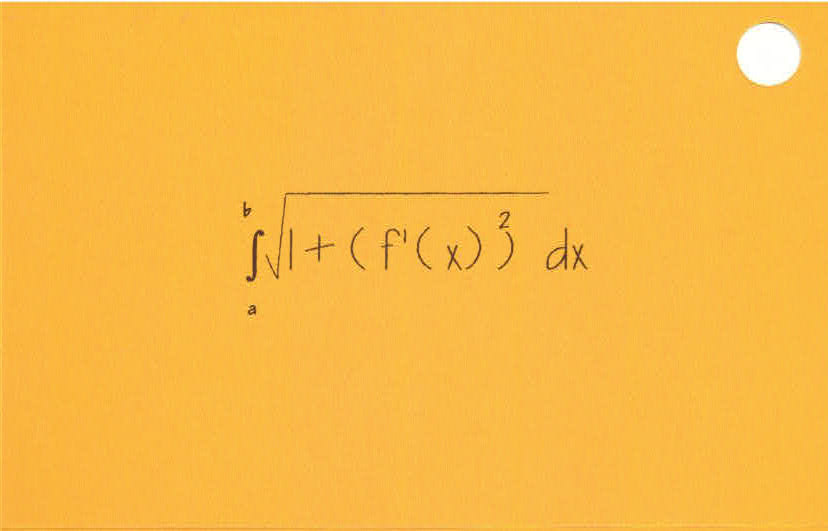 ∫ₐᵇ √(1+(f'(x))²) dx